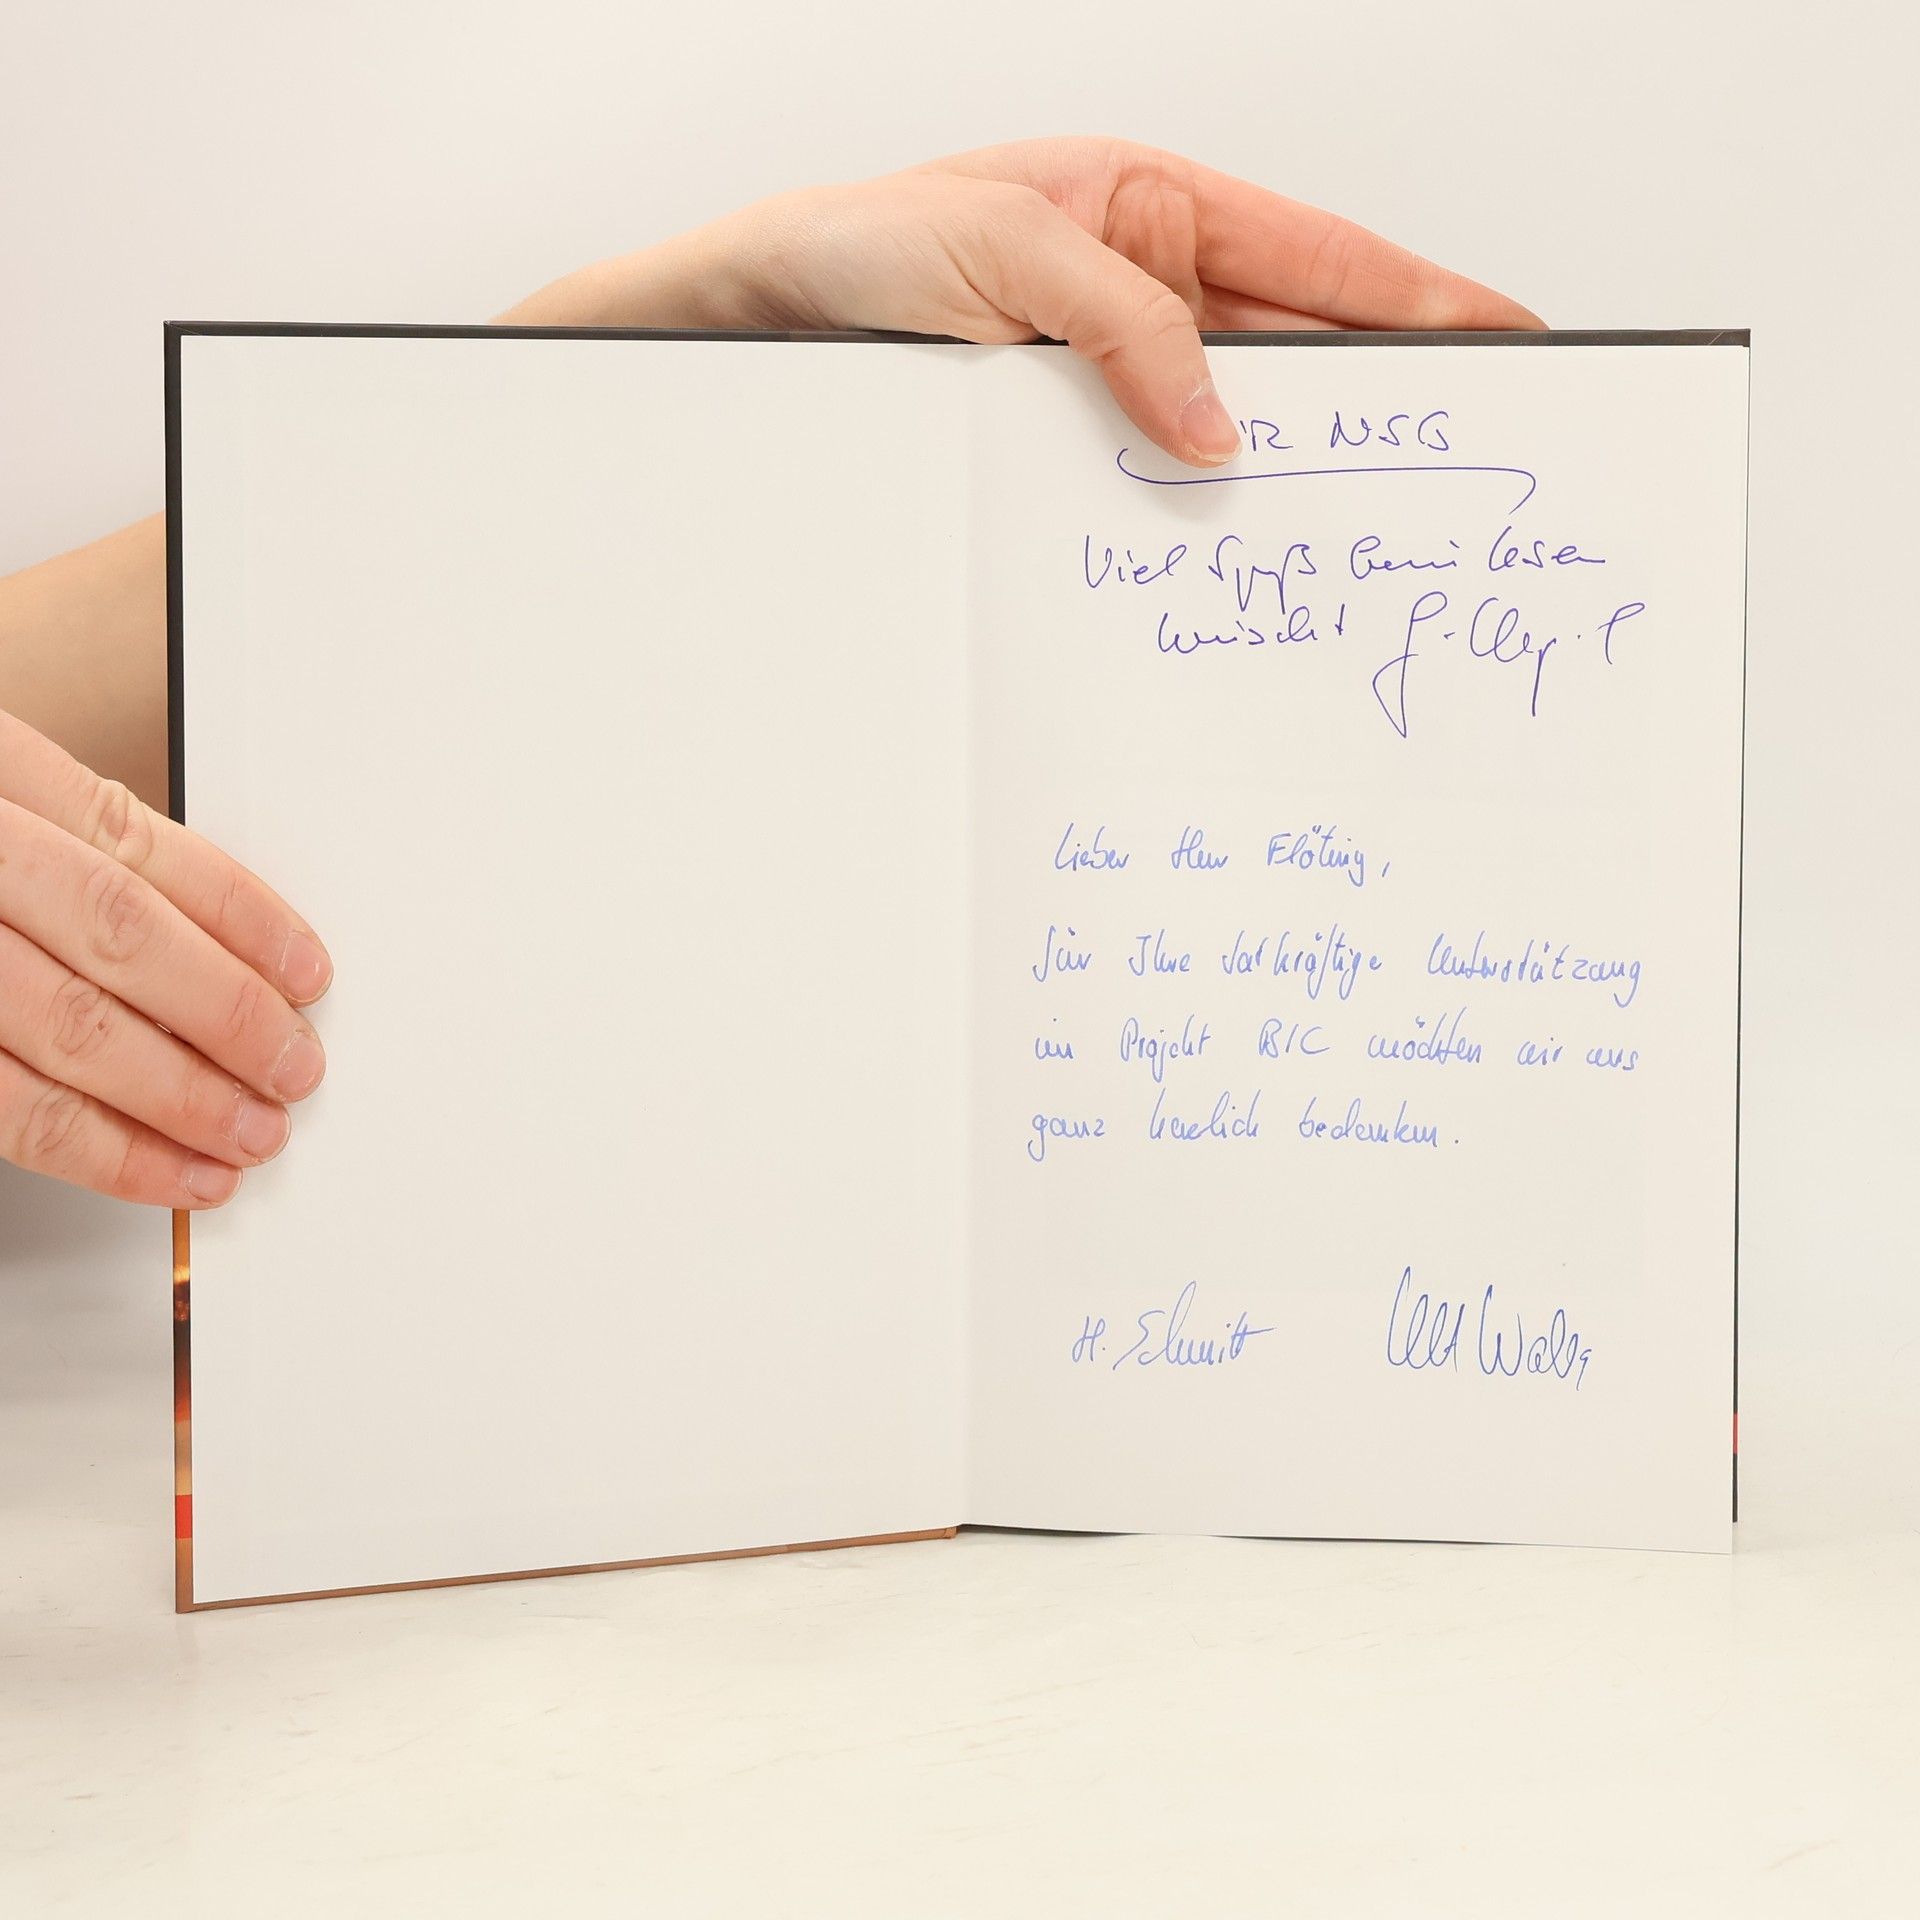 NSG
Viel Spaß beim Lesen
wünscht
Lieber Herr Flöting,
für Ihre tatkräftige Unterstützung
im Projekt BIC möchten wir uns
ganz herzlich bedanken.
H. Schmitt